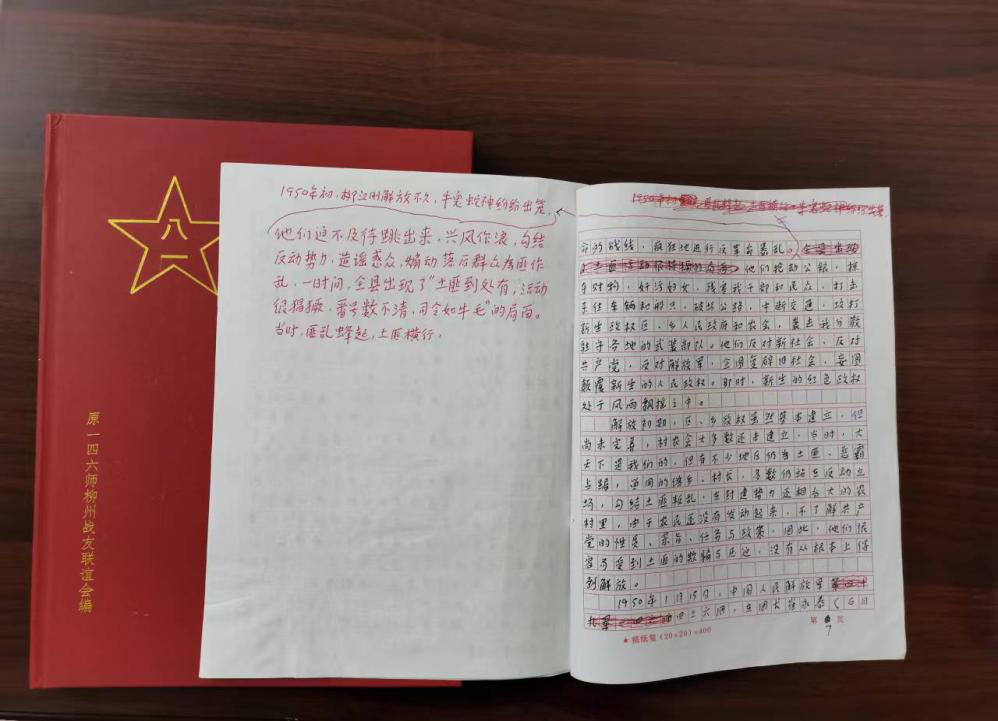 八一
原一四六师柳州战友联谊会编
1950年初,柳江刚解放不久,牛鬼蛇神纷纷出笼,
他们迫不及待跳出来,兴风作浪,勾结
反动势力,造谣惑众,煽动落后群众为匪作
乱,一时间,全县出现了"土匪到处有,活动
很猖獗,番号数不清,司令如牛毛"的局面。
当时,匪乱蜂起,土匪横行,
1950年初
命的战线,疯狂地进行反革命暴乱。
他们抢劫公粮,
财物,奸污妇女,残害我干部和民众,打击
来往车辆和船只,破坏公路,卡断交通,攻打
新生政权区、乡人民政府和农会,袭击我分散
驻于各地的武装部队。他们反对新社会,反对
共产党,反对解放军,企图复辟旧社会,妄图
颠覆新生的人民政权。那时,新生的红色政权
处于风雨飘摇之中。
解放初期,区、乡政权虽然基本建立,但
尚未完善,村农会大多数还未建立,当时,大
天下是我们的,但有不少地区仍为土匪、恶霸
占据,沿用的伪乡、村长,多数仍站在反动立
场,勾结土匪叛乱,在封建势力还相当大的农
村里,由于农民还没有发动起来,不了解共产
党的性质、宗旨、任务与政策,因此,他们很
容易受到土匪的欺骗与压迫,没有从根本上得
到解放。
1950年1月15日,中国人民解放军
四三六师,在团长崔永泰(6日
第 7 页
★稿纸笺(20×20)=400